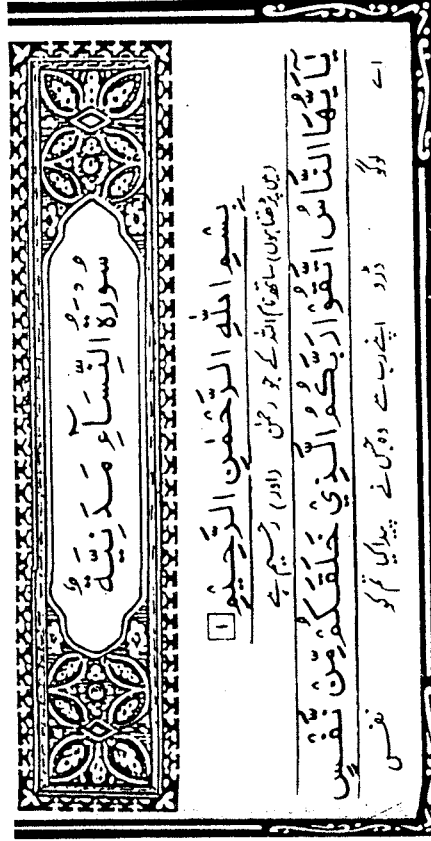 سُوْرَةُ النِّسَآءِ مَدَنِيَّةٌ
بِسْمِ اللهِ الرَّحْمٰنِ الرَّحِيْمِ
(میں پڑھتا ہوں) ساتھ نام اللہ کے جو رحمٰن (اور) رحیم ہے
١
يٰۤاَيُّهَا النَّاسُ اتَّقُوْا رَبَّكُمُ الَّذِيْ خَلَقَكُمْ مِّنْ نَّفْسٍ
اے لوگو ڈرو اپنے رب سے وہ جس نے پیدا کیا تم کو نفس